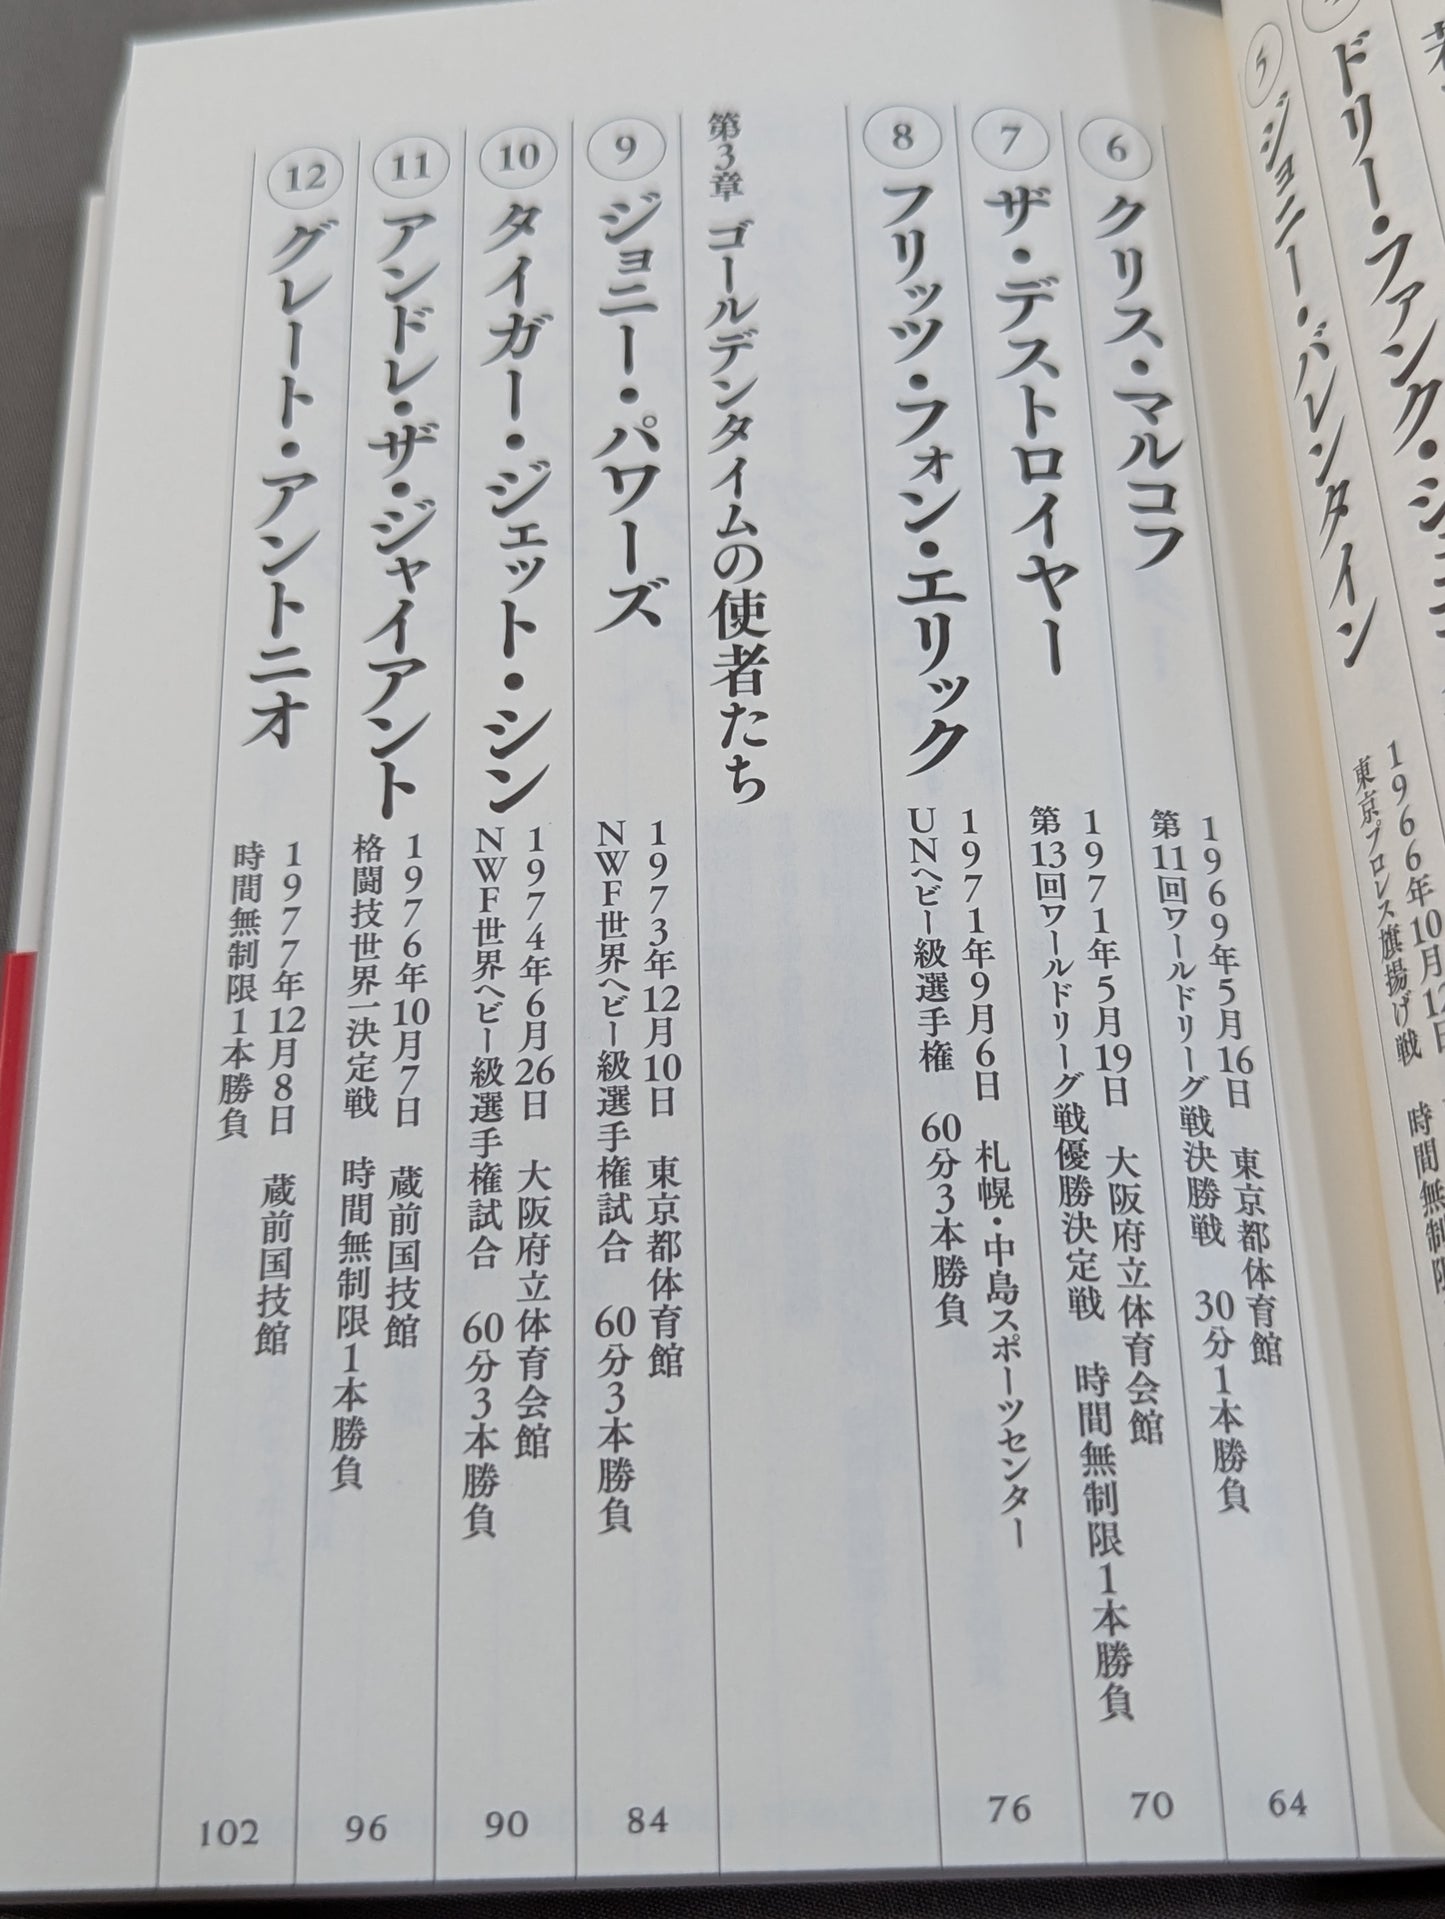 ドリー・ファンク・ジュ
⑤
ジョニー・バレンタイン
1966年10月12日 時間無制限
東京プロレス旗揚げ戦
⑥
クリス・マルコフ
1969年5月16日 東京都体育館
第11回ワールドリーグ戦決勝戦 30分1本勝負
64
⑦
ザ・デストロイヤー
1971年5月19日 大阪府立体育会館
第13回ワールドリーグ戦優勝決定戦 時間無制限1本勝負
70
⑧
フリッツ・フォン・エリック
1971年9月6日 札幌・中島スポーツセンター
UNヘビー級選手権 60分3本勝負
76
第3章 ゴールデンタイムの使者たち
⑨
ジョニー・パワーズ
1973年12月10日 東京都体育館
NWF世界ヘビー級選手権試合 60分3本勝負
84
⑩
タイガー・ジェット・シン
1974年6月26日 大阪府立体育会館
NWF世界ヘビー級選手権試合 60分3本勝負
90
⑪
アンドレ・ザ・ジャイアント
1976年10月7日 蔵前国技館
格闘技世界一決定戦 時間無制限1本勝負
96
⑫
グレート・アントニオ
1977年12月8日 蔵前国技館
時間無制限1本勝負
102